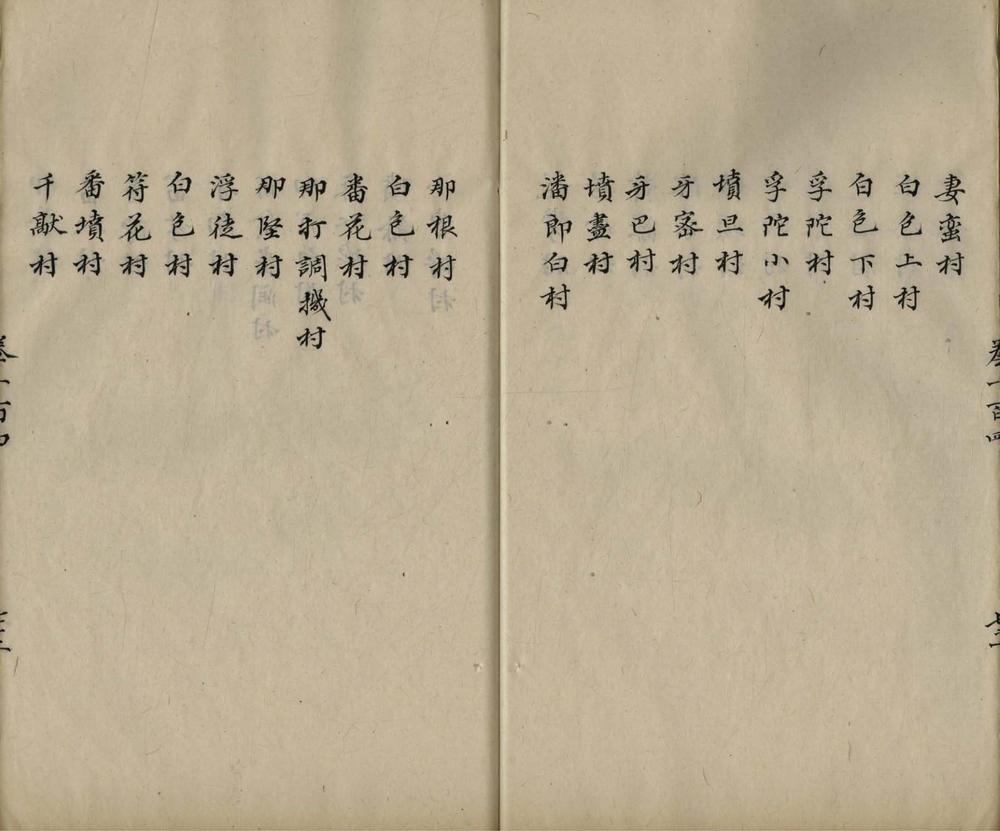 妻蛮村
白色上村
白色下村
孚陀村
孚陀小村
墳旦村
牙寨村
牙巴村
墳盞村
潘郎白村
卷一百四
七二
那根村
白色村
番花村
那打調機村
那堅村
浮徒村
白色村
符花村
番墳村
千獻村
卷一百四